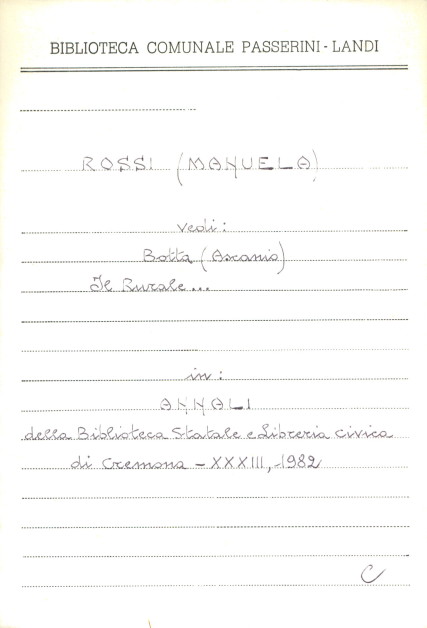 BIBLIOTECA COMUNALE PASSERINI - LANDI
ROSSI (MANUELA)
vedi:
Botta (Ascanio)
Il Rurale...
in:
ANNALI
della Biblioteca Statale e Libreria Civica
di Cremona - XXXIII, 1982
C